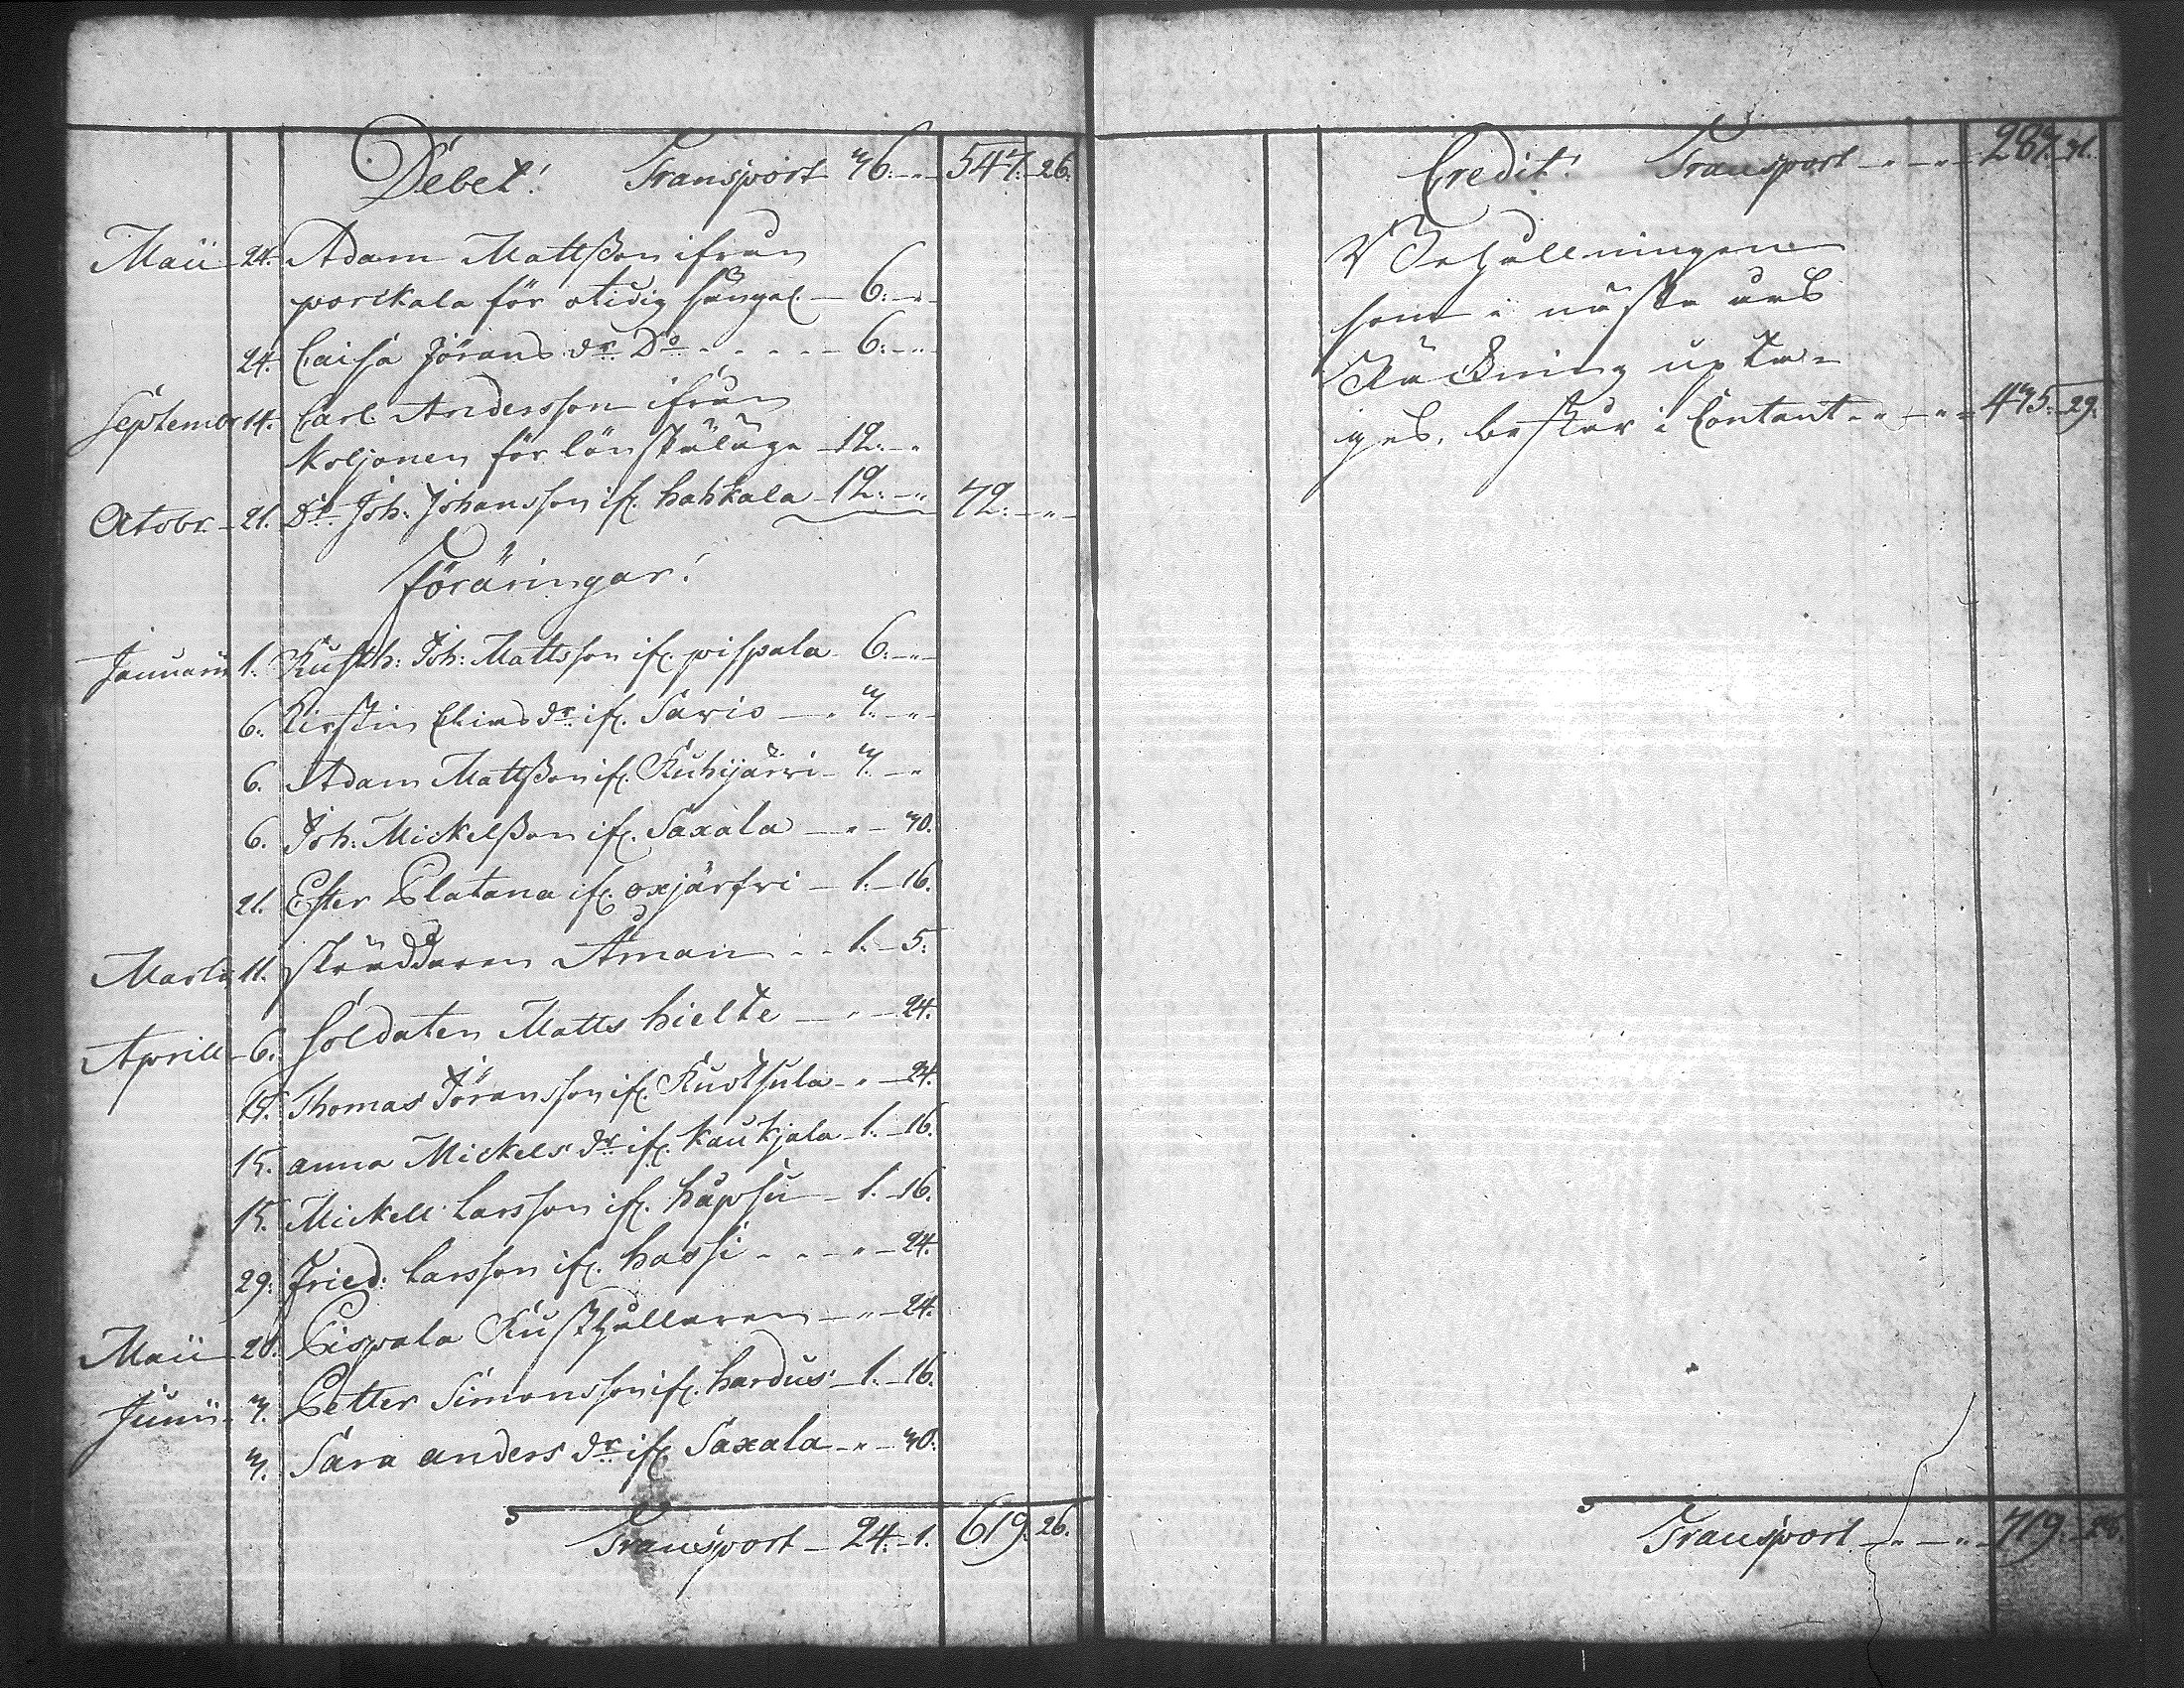 Debet! Transport 36. " 547. 26.
Maii 24. Adam Mattsson ifrån
porikala för otidig sängel. 6. "
24. Caisa Jörans dr Do 6. "
Septembr 14. Carl Andersson ifrån
Koljonen för lönskaläge 12. "
Octobr. 21. Do Joh: Johansson if. hahkala 12. " 72. "
Föräringar!
Januarii 1. Rusth: Joh: Mattsson if. pispala 6. "
6. Kirstin dr if. Savio " 3. "
6. Adam Mattsson if. Kuhijärvi 3. "
6. Joh: Mickelsson if. Saxala " 30.
21. Ester Platana if. oxjärfvi 1. 16.
Martii 11. skräddaren Åman 1. 5.
Aprill 6. Soldaten Matts hielte " 24.
15. Thomas Jöransson if. Kuotsula " 24.
15. anna Mickels dr if. Kaukjala 1. 16.
15. Mickell Larsson if. hapsu 1. 16.
29. Fried: Larsson if. hassi " 24.
Maii 20. Pispala Rusthållaren " 24.
Junii 3. Petter Simonsson if. hardus 1. 16.
3. Sara anders dr if. Saxala " 30.
Transport 24. 1. 619. 26.
Credit! Transport " " 283. 31.
Behållningen
som i nästa års
Räckning upta-
ges, består i Contant " " 435. 29.
Transport " " 719. 28.